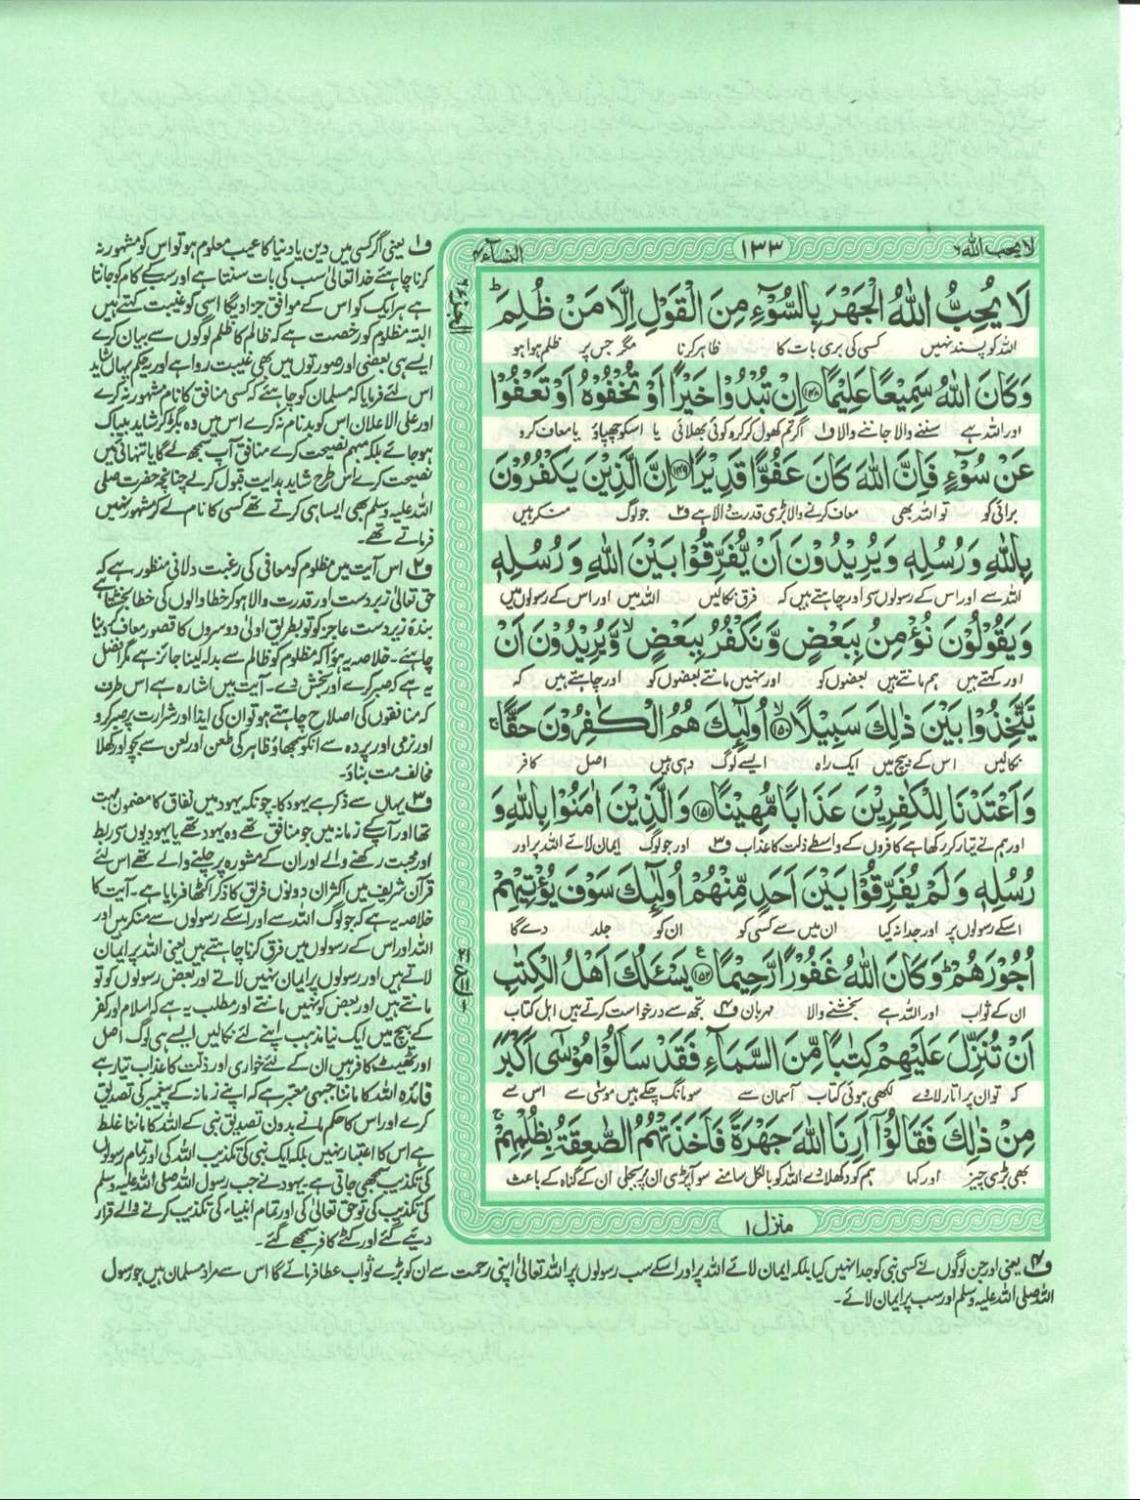 لا یحب اللہ ٦
١٣٣
النسآء ٤
لَا يُحِبُّ اللهُ الْجَهْرَ بِالسُّوْٓءِ مِنَ الْقَوْلِ اِلَّا مَنْ ظُلِمَ ؕ
اللہ کو پسند نہیں کسی کی بری بات کا ظاہر کرنا مگر جس پر ظلم ہوا ہو
وَكَانَ اللهُ سَمِيْعًا عَلِيْمًا ﴿۱۴۸﴾ اِنْ تُبْدُوْا خَيْرًا اَوْ تُخْفُوْهُ اَوْ تَعْفُوْا
اور اللہ ہے سننے والا جاننے والا ف۱ اگر تم کھول کر کرو کوئی بھلائی یا اسکو چھپاؤ یا معاف کرو
عَنْ سُوْٓءٍ فَاِنَّ اللهَ كَانَ عَفُوًّا قَدِيْرًا ﴿۱۴۹﴾ اِنَّ الَّذِيْنَ يَكْفُرُوْنَ
برائی کو تو اللہ بھی معاف کرنے والا بڑی قدرت والا ہے ف۲ جو لوگ منکر ہیں
بِاللهِ وَرُسُلِهٖ وَيُرِيْدُوْنَ اَنْ يُّفَرِّقُوْا بَيْنَ اللهِ وَرُسُلِهٖ
اللہ سے اور اس کے رسولوں سے اور چاہتے ہیں کہ فرق نکالیں اللہ میں اور اس کے رسولوں میں
وَيَقُوْلُوْنَ نُؤْمِنُ بِبَعْضٍ وَّنَكْفُرُ بِبَعْضٍ ۙ وَّيُرِيْدُوْنَ اَنْ
اور کہتے ہیں ہم مانتے ہیں بعضوں کو اور نہیں مانتے بعضوں کو اور چاہتے ہیں کہ
يَّتَّخِذُوْا بَيْنَ ذٰلِكَ سَبِيْلًا ۙ﴿۱۵۰﴾ اُولٰٓئِكَ هُمُ الْكٰفِرُوْنَ حَقًّا ۚ
نکالیں اس کے بیچ میں ایک راہ ایسے لوگ وہی ہیں اصل کافر
وَاَعْتَدْنَا لِلْكٰفِرِيْنَ عَذَابًا مُّهِيْنًا ﴿۱۵۱﴾ وَالَّذِيْنَ اٰمَنُوْا بِاللهِ وَ
اور ہم نے تیار کر رکھا ہے کافروں کے واسطے ذلت کا عذاب ف۳ اور جو لوگ ایمان لائے اللہ پر اور
رُسُلِهٖ وَلَمْ يُفَرِّقُوْا بَيْنَ اَحَدٍ مِّنْهُمْ اُولٰٓئِكَ سَوْفَ يُؤْتِيْهِمْ
اسکے رسولوں پر اور جدا نہ کیا ان میں سے کسی کو ان کو جلد دے گا
اُجُوْرَهُمْ ؕ وَكَانَ اللهُ غَفُوْرًا رَّحِيْمًا ﴿۱۵۲﴾ يَسْـَٔلُكَ اَهْلُ الْكِتٰبِ
ان کے ثواب اور اللہ ہے بخشنے والا مہربان ف۴ تجھ سے درخواست کرتے ہیں اہل کتاب
اَنْ تُنَزِّلَ عَلَيْهِمْ كِتٰبًا مِّنَ السَّمَآءِ فَقَدْ سَاَلُوْا مُوْسٰٓى اَكْبَرَ
کہ تو ان پر اتار لاوے لکھی ہوئی کتاب آسمان سے سو مانگ چکے ہیں موسٰی سے اس سے
مِنْ ذٰلِكَ فَقَالُوْٓا اَرِنَا اللهَ جَهْرَةً فَاَخَذَتْهُمُ الصّٰعِقَةُ بِظُلْمِهِمْ ۚ
بھی بڑی چیز اور کہا ہم کو دکھلا دے اللہ کو بالکل سامنے سو آپڑی ان پر بجلی ان کے گناہ کے باعث
منزل ١
ف۱ یعنی اگر کسی میں دین یا دنیا کا عیب معلوم ہو تو اس کو مشہور نہ
کرنا چاہئے خدا تعالیٰ سب کی بات سنتا ہے اور سب کے کام کو جانتا
ہے ہر ایک کو اس کے موافق جزا دیگا اسی کو غیبت کہتے ہیں
البتہ مظلوم کو رخصت ہے کہ ظالم کا ظلم لوگوں سے بیان کرے
ایسے ہی بعضی اور صورتوں میں بھی غیبت روا ہے اور یہ حکم یہاں شاید
اس لئے فرمایا کہ مسلمان کو چاہئے کہ کسی منافق کا نام مشہور نہ کرے
اور علی الاعلان اس کو بدنام نہ کرے اس میں وہ بگڑ کر شاید بیباک
ہو جائے بلکہ مبہم نصیحت کرے منافق آپ سمجھ لے گا یا تنہائی میں
نصیحت کرے اس طرح شاید ہدایت قبول کرلے چنانچہ حضرت صلی
اللہ علیہ وسلم بھی ایسا ہی کرتے تھے کسی کا نام لے کر مشہور نہیں
فرماتے تھے۔
ف۲ اس آیت میں مظلوم کو معافی کی رغبت دلانی منظور ہے کہ
حق تعالیٰ زبردست اور قدرت والا ہو کر خطا والوں کی خطا بخشتا ہے
بندہ زیردست عاجز کو تو بطریق اولیٰ دوسروں کا قصور معاف کر دینا
چاہئے۔ خلاصہ یہ ہوا کہ مظلوم کو ظالم سے بدلہ لینا جائز ہے مگر افضل
یہ ہے کہ صبر کرے اور بخش دے۔ آیت میں اشارہ ہے اس طرف
کہ منافقوں کی اصلاح چاہتے ہو تو ان کی ایذا اور شرارت پر صبر کرو
اور نرمی اور پردہ سے انکو سمجھاؤ ظاہر کی طعن اور لعن سے بچو اور کھلا
مخالف مت بناؤ۔
ف۳ یہاں سے ذکر ہے یہود کا۔ چونکہ یہود میں نفاق کا مضمون بہت
تھا اور آپ کے زمانہ میں جو منافق تھے وہ یہود تھے یا یہودیوں سے ربط
اور محبت رکھنے والے اور ان کے مشورہ پر چلنے والے تھے اس لئے
قرآن شریف میں اکثر ان دونوں فریق کا ذکر اکٹھا فرمایا ہے۔ آیت کا
خلاصہ یہ ہے کہ جو لوگ اللہ سے اور اسکے رسولوں سے منکر ہیں اور
اللہ اور اس کے رسولوں میں فرق کرنا چاہتے ہیں یعنی اللہ پر ایمان
لاتے ہیں اور رسولوں پر ایمان نہیں لاتے اور بعض رسولوں کو تو
مانتے ہیں اور بعض کو نہیں مانتے اور مطلب یہ ہے کہ اسلام اور کفر
کے بیچ میں ایک نیا مذہب اپنے لئے نکالیں ایسے ہی لوگ اصل
اور ٹھیٹ کافر ہیں ان کے لئے خواری اور ذلت کا عذاب تیار ہے
فائدہ اللہ کا ماننا جبھی معتبر ہے کہ اپنے زمانہ کے پیغمبر کی تصدیق
کرے اور اس کا حکم مانے بدون تصدیق نبی کے اللہ کا ماننا غلط
ہے اس کا اعتبار نہیں بلکہ ایک نبی کی تکذیب اللہ کی اور تمام رسولوں
کی تکذیب سمجھی جاتی ہے۔ یہود نے جب رسول اللہ صلی اللہ علیہ وسلم
کی تکذیب کی تو حق تعالیٰ کی اور تمام انبیاء کی تکذیب کرنے والے قرار
دیئے گئے اور کٹے کافر سمجھے گئے۔
ف۴ یعنی اور جن لوگوں نے کسی نبی کو جدا نہیں کیا بلکہ ایمان لائے اللہ پر اور اسکے سب رسولوں پر اللہ تعالیٰ اپنی رحمت سے ان کو بڑے ثواب عطا فرمائے گا اس سے مراد مسلمان ہیں جو رسول
اللہ صلی اللہ علیہ وسلم اور سب پر ایمان لائے۔